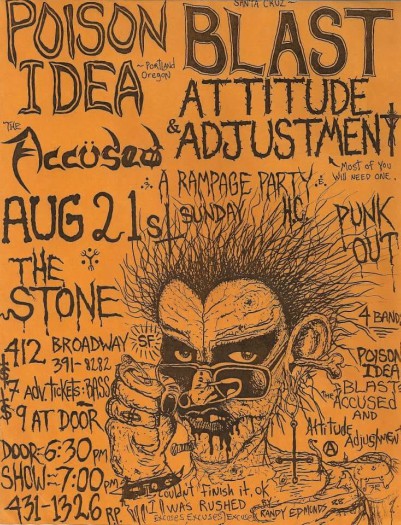 POISON
IDEA
~PORTLAND
OREGON
SANTA CRUZ
BLAST
THE
Accüsed
ATTITUDE
& ADJUSTMENT
MOST OF YOU
WILL NEED ONE.
A RAMPAGE PARTY
AUG 21st
SUNDAY
H.C.
PUNK
OUT
THE
STONE
412 BROADWAY
SF
391-8282
$7 ADV. TICKETS: BASS
$9 AT DOOR
DOOR=6:30PM
SHOW=7:00PM
431-1326 RP.
4 BANDS
POISON
IDEA
BLAST
THE ACCUSED
AND
Attitude
Adjustment
I couldnt finish it, ok
I WAS RUSHED
Excuses Excuses Excuses
BY
RANDY EDMONDS